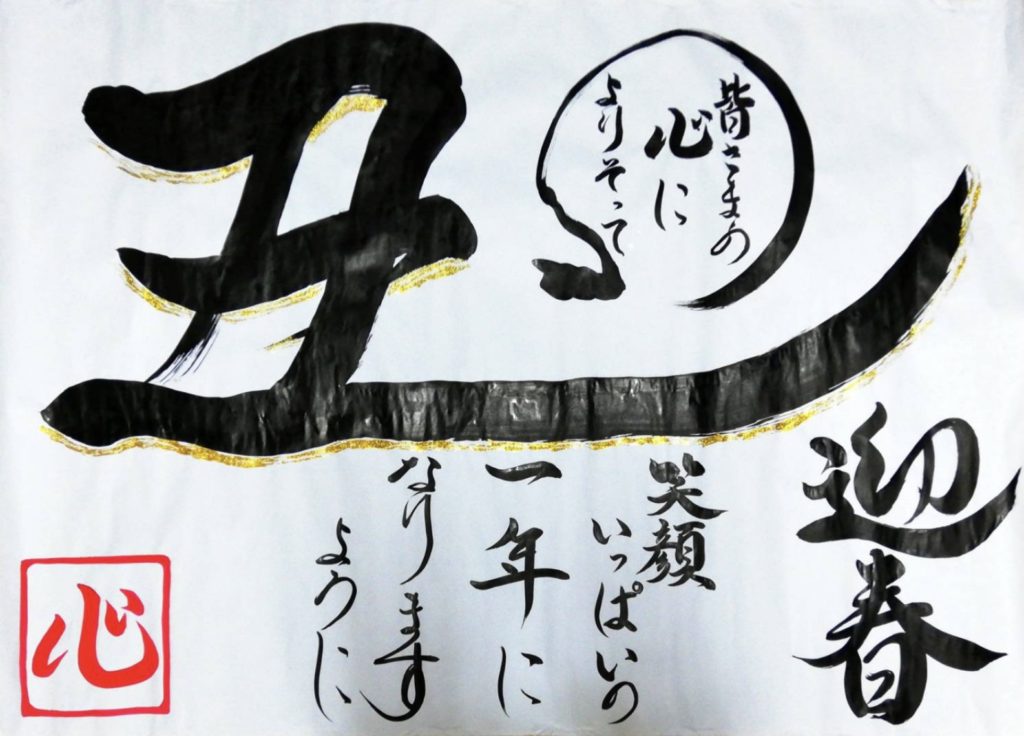 丑
皆さまの
心に
よりそって
迎春
笑顔
いっぱいの
一年に
なります
ように
心